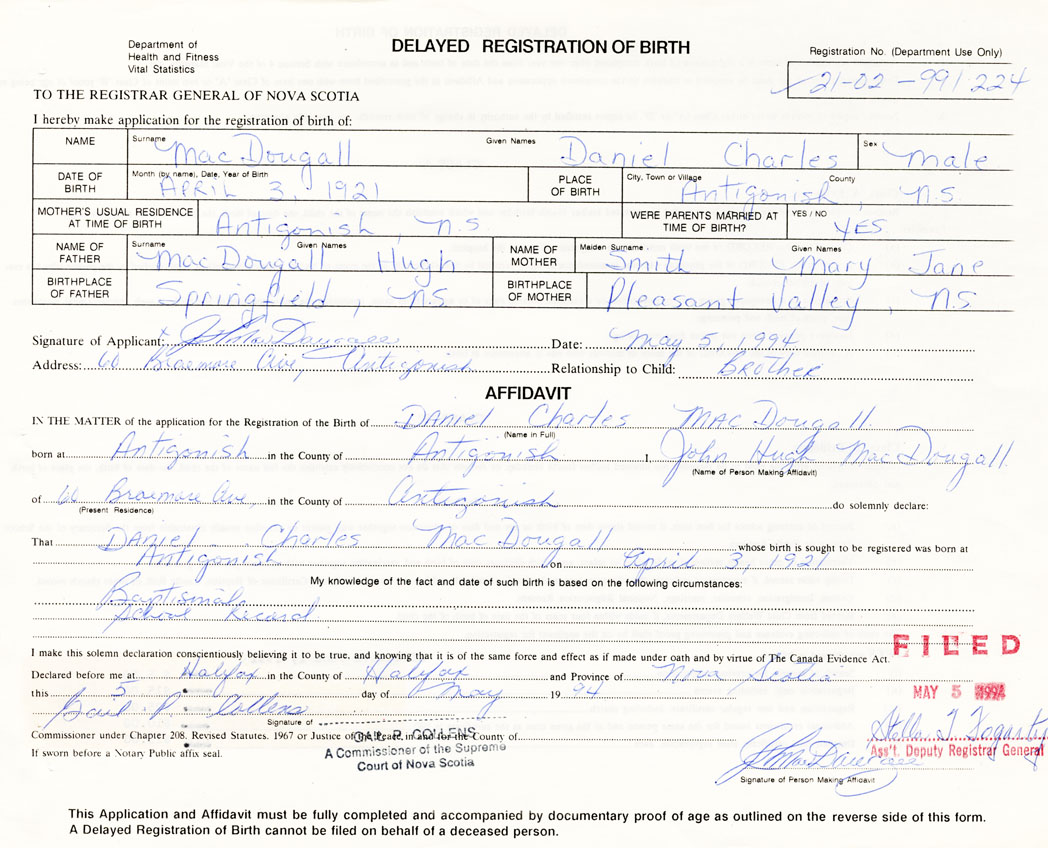 Department of
Health and Fitness
Vital Statistics
DELAYED REGISTRATION OF BIRTH
Registration No. (Department Use Only)
21-02-991224
TO THE REGISTRAR GENERAL OF NOVA SCOTIA
I hereby make application for the registration of birth of:
NAME Surname MacDougall Given Names Daniel Charles Sex Male
DATE OF BIRTH Month (by name), Date, Year of Birth APRIL 3, 1921 PLACE OF BIRTH City, Town or Village County Antigonish, N.S.
MOTHER'S USUAL RESIDENCE AT TIME OF BIRTH Antigonish, N.S. WERE PARENTS MARRIED AT TIME OF BIRTH? YES / NO YES
NAME OF FATHER Surname MacDougall Given Names Hugh NAME OF MOTHER Maiden Surname Smith Given Names Mary Jane
BIRTHPLACE OF FATHER Springfield, N.S. BIRTHPLACE OF MOTHER Pleasant Valley, N.S.
Signature of Applicant: x J H MacDougall Date: May 5, 1994
Address: 60 Braemore Ave, Antigonish Relationship to Child: BROTHER
AFFIDAVIT
IN THE MATTER of the application for the Registration of the Birth of DANIEL Charles MAC Dougall
(Name in Full)
born at Antigonish in the County of Antigonish I, John Hugh MacDougall
(Name of Person Making Affidavit)
of 60 Braemore Ave, in the County of Antigonish do solemnly declare:
(Present Residence)
That DANIEL Charles MacDougall whose birth is sought to be registered was born at
Antigonish on April 3, 1921
My knowledge of the fact and date of such birth is based on the following circumstances:
Baptismal
School Record
I make this solemn declaration conscientiously believing it to be true, and knowing that it is of the same force and effect as if made under oath and by virtue of The Canada Evidence Act.
FILED
Declared before me at Halifax in the County of Halifax and Province of Nova Scotia
this 5 day of May 19 94
MAY 5 1994
Gail P. Collens
Signature of
Stella T Fogarty
Ass't. Deputy Registrar General
Commissioner under Chapter 208, Revised Statutes, 1967 or Justice of the Peace in and for the County of
GAIL P. COLLENS
A Commissioner of the Supreme
Court of Nova Scotia
If sworn before a Notary Public affix seal.
J H MacDougall
Signature of Person Making Affidavit
This Application and Affidavit must be fully completed and accompanied by documentary proof of age as outlined on the reverse side of this form.
A Delayed Registration of Birth cannot be filed on behalf of a deceased person.